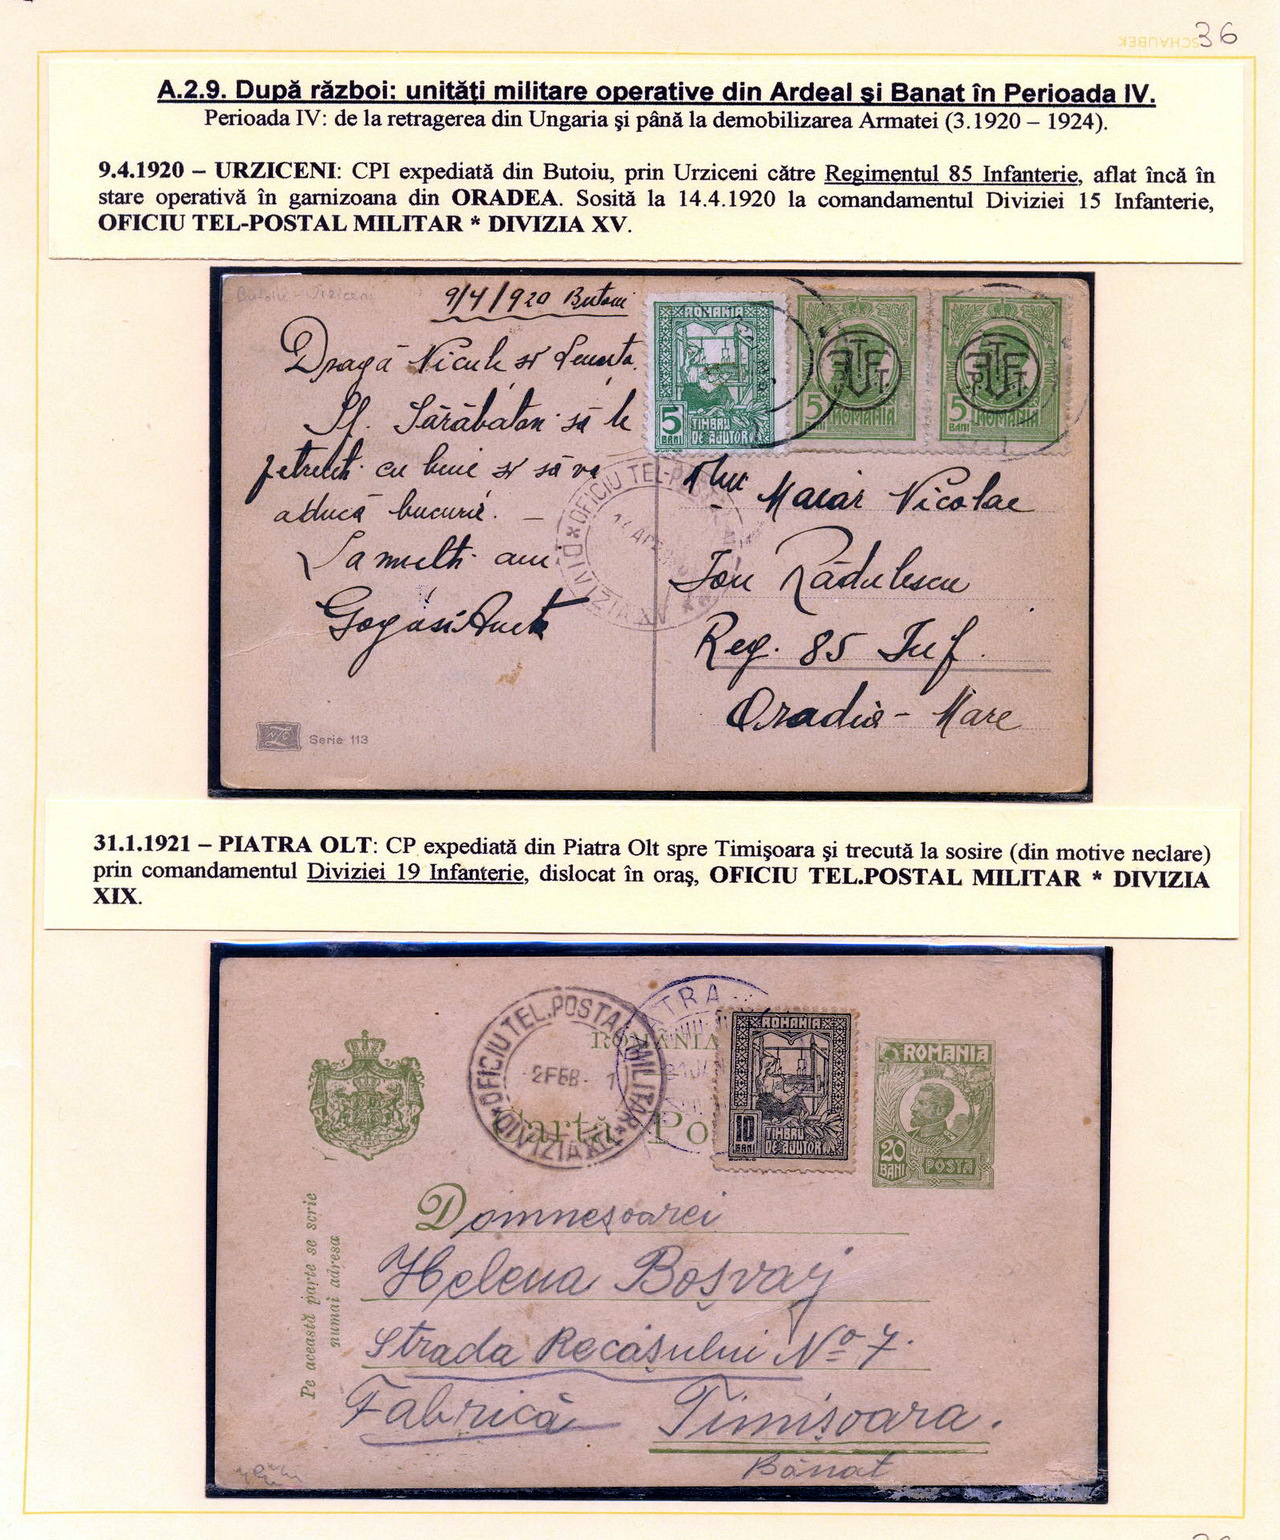 36
SCHAUBEK
A.2.9. După război: unități militare operative din Ardeal și Banat în Perioada IV.
Perioada IV: de la retragerea din Ungaria și până la demobilizarea Armatei (3.1920 – 1924).
9.4.1920 – URZICENI: CPI expediată din Butoiu, prin Urziceni către Regimentul 85 Infanterie, aflat încă în
stare operativă în garnizoana din ORADEA. Sosită la 14.4.1920 la comandamentul Diviziei 15 Infanterie,
OFICIU TEL-POSTAL MILITAR * DIVIZIA XV.
Butoiu - Urziceni
9/4/920 Butoiu
ROMANIA
5 BANI
TIMBRU DE AJUTOR
5 BANI
ROMANIA
5 BANI
ROMANIA
Dragă Niculae și
Sf. Sărăbători să le
petreceti cu bine și să va
aducă bucurie. –
La multi ani
OFICIU TEL-POSTAL
DIVIZIA XV
Maiar Nicolae
Ion Rădulescu
Reg. 85 Inf.
Oradia - Mare
Serie 113
31.1.1921 – PIATRA OLT: CP expediată din Piatra Olt spre Timișoara și trecută la sosire (din motive neclare)
prin comandamentul Diviziei 19 Infanterie, dislocat în oraș, OFICIU TEL.POSTAL MILITAR * DIVIZIA
XIX.
OFICIU TEL.POSTAL MILITAR
2 FEB
DIVIZIA XIX
ROMÂNIA
Carta Po
ROMANIA
10 BANI
TIMBRU DE AJUTOR
ROMANIA
20 BANI
POSTA
Pe această parte se scrie
numai adresa
Domneșoarei
Helena Boșvay
Strada Recașului No 7.
Fabrică Timișoara.
Bănat